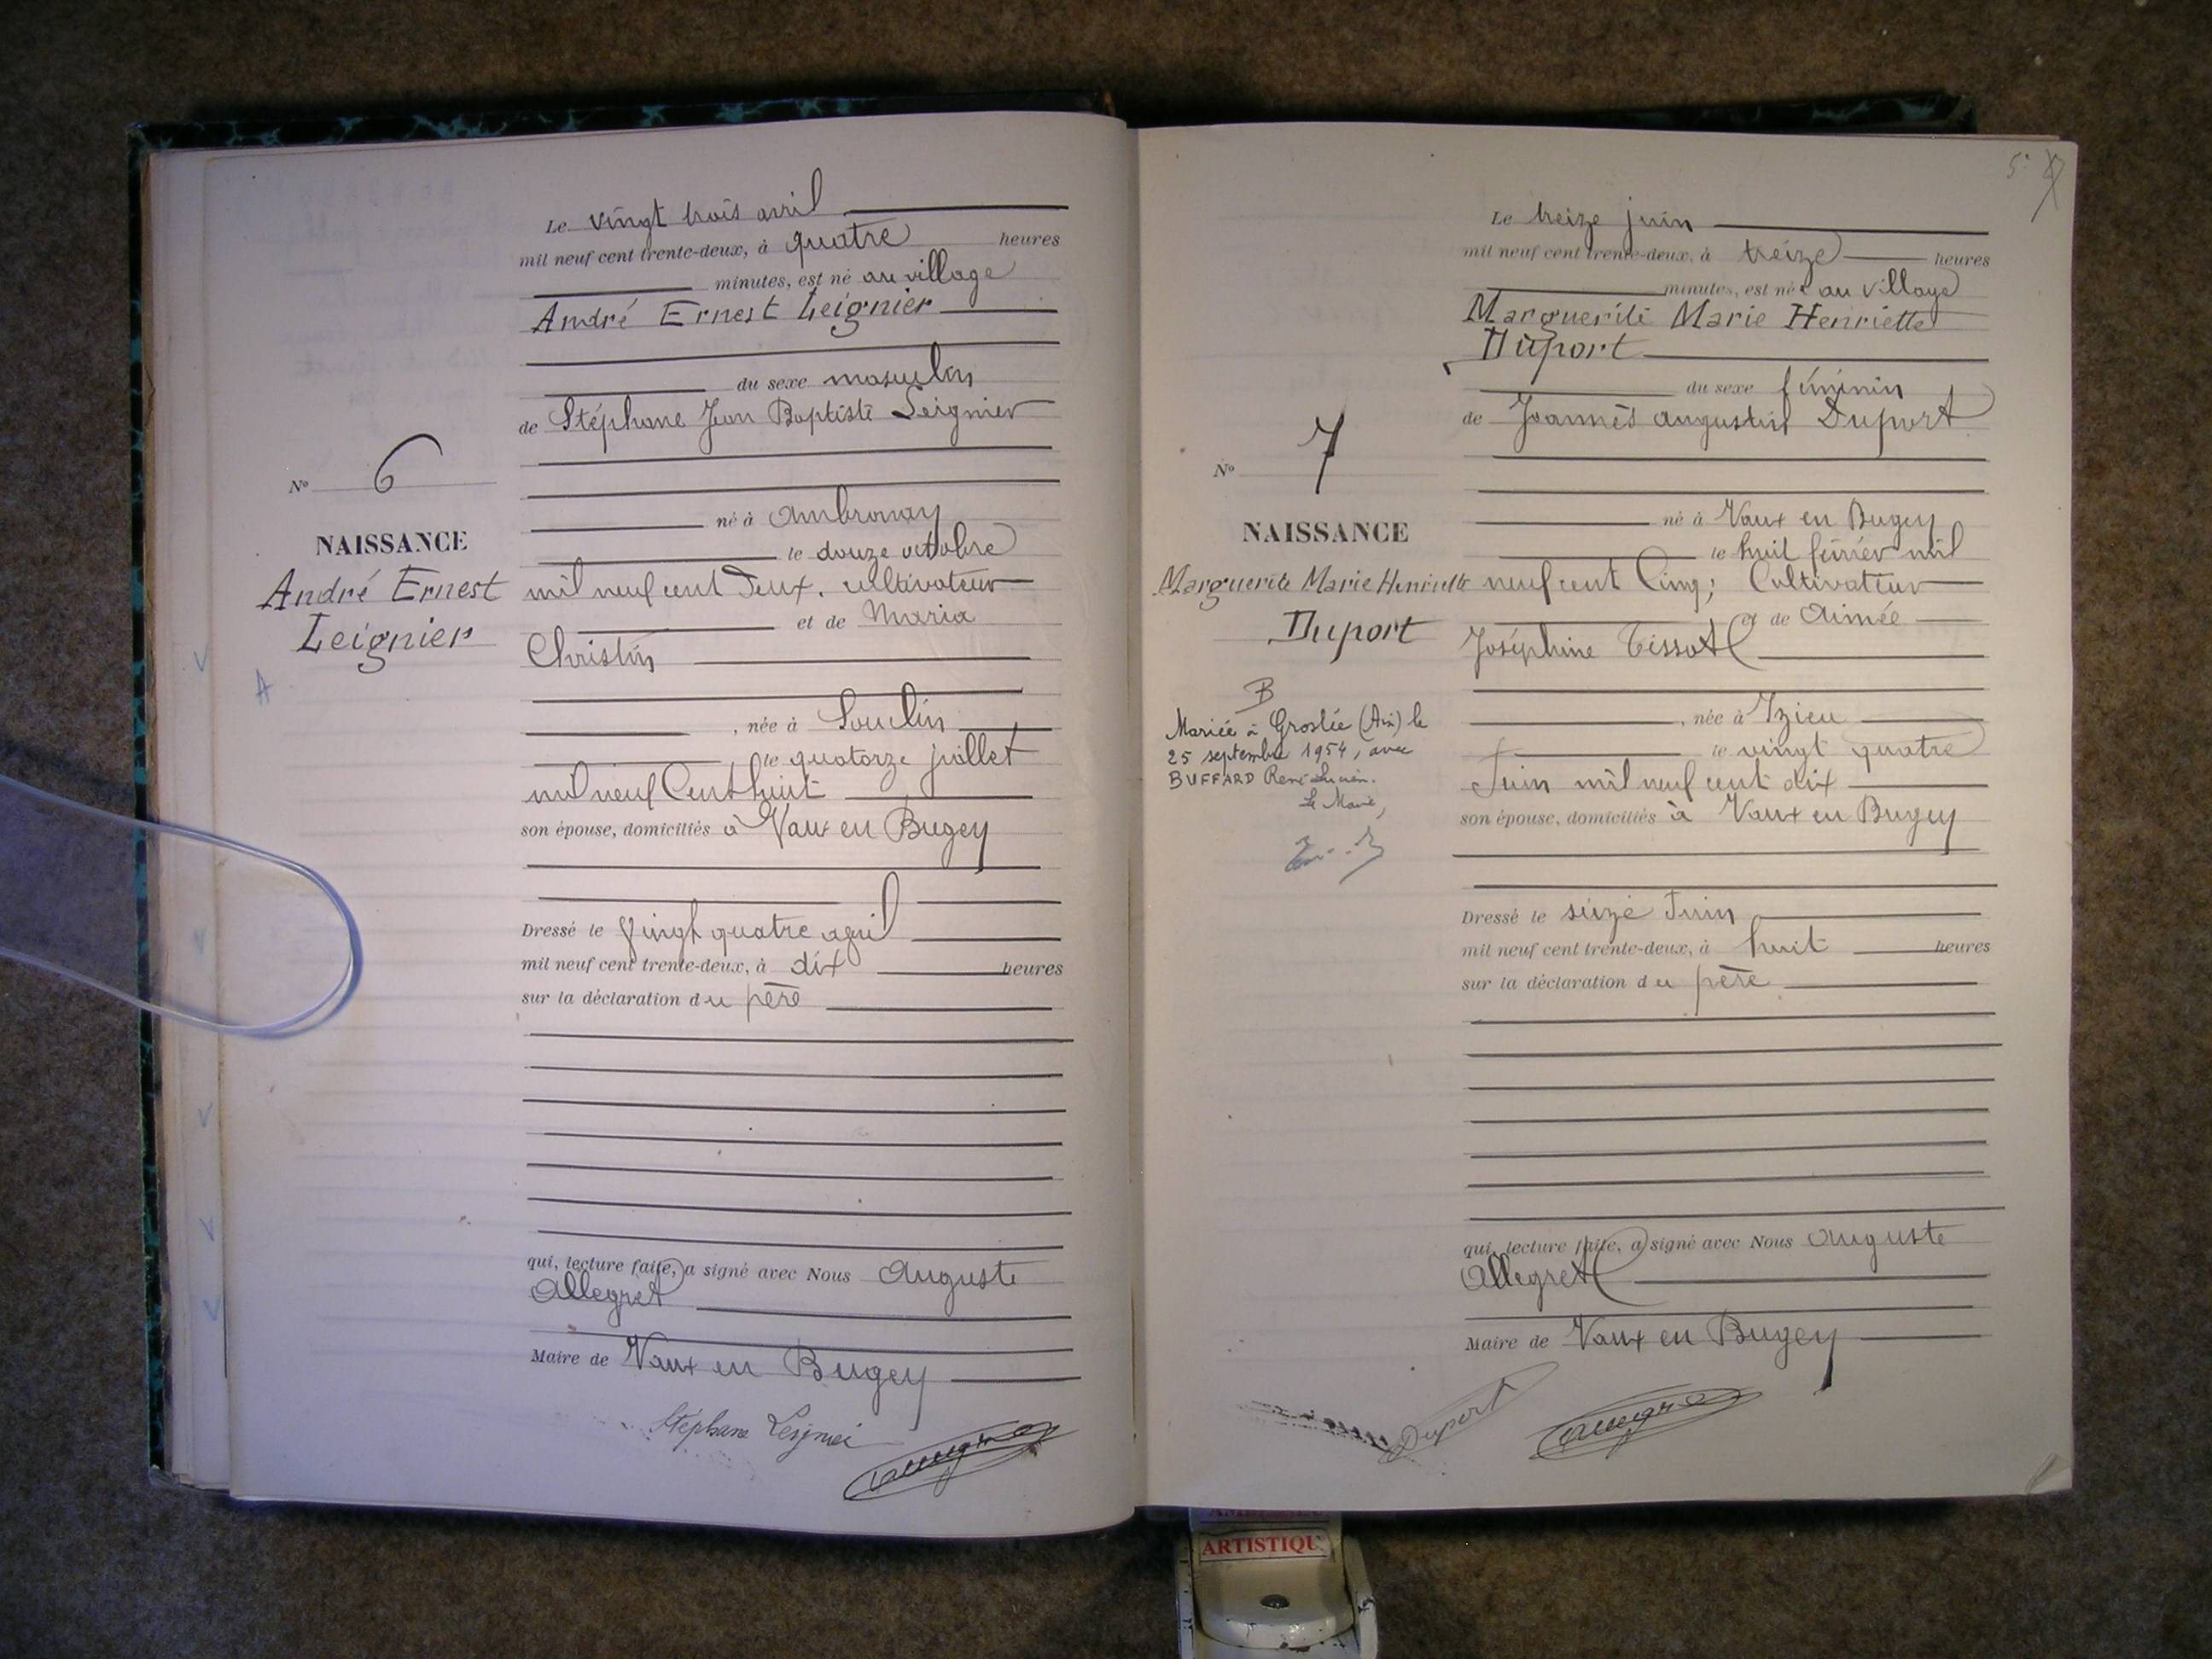 Le vingt trois avril
mil neuf cent trente-deux, à quatre heures
minutes, est né au village
André Ernest Leignier
du sexe masculin
de Stéphane Jean Baptiste Leignier
N° 6
né à Ambronay
NAISSANCE
le douze octobre
André Ernest
mil neuf cent deux, cultivateur
et de Maria
Leignier
Christin
A
, née à Souclin
le quatorze juillet
mil neuf Cent huit
son épouse, domiciliés à Vaux en Bugey
Dressé le vingt quatre avril
mil neuf cent trente-deux, à dix heures
sur la déclaration du père
qui, lecture faite, a signé avec Nous Auguste
Allegret
Maire de Vaux en Bugey
Stéphane Leignier
5
Le treize juin
mil neuf cent trente-deux, à treize heures
minutes, est née au village
Marguerite Marie Henriette
Duport
du sexe féminin
de Joannès Augustin Duport
N° 7
né à Vaux en Bugey
NAISSANCE
le huit février mil
Marguerite Marie Henriette
neuf cent Cinq; Cultivateur
et de Aimée
Duport
Joséphine Tissot
B
Mariée à Groslée (Ain) le
25 septembre 1954, avec
BUFFARD René Lucien.
Le Maire,
, née à Izieu
le vingt quatre
Juin mil neuf cent dix
son épouse, domiciliés à Vaux en Bugey
Dressé le seize Juin
mil neuf cent trente-deux, à huit heures
sur la déclaration du père
qui, lecture faite, a signé avec Nous Auguste
Allegret
Maire de Vaux en Bugey
Duport
ARTISTIQU